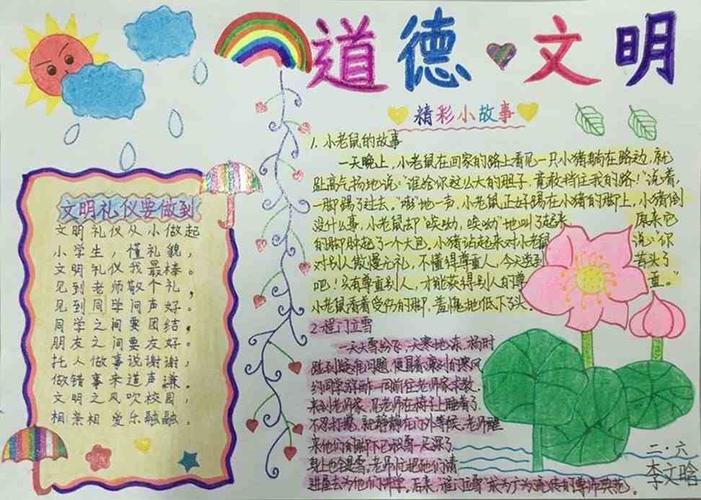 道德文明
精彩小故事
1.小老鼠的故事
一天晚上,小老鼠在回家的路上看见一只小猪躺在路边,就
趾高气扬地说:"谁给你这么大的胆子,竟敢挡住我的路!"说着,
一脚踢了过去。"嘭"地一声,小老鼠正好踢在小猪的脚上,小猪倒
没什么事,小老鼠却"唉呦,唉呦"地叫了起来 原来它
的脚肿起了一个大包。小猪站起来对小老鼠 说:"你
对别人傲慢无礼,不懂得尊重人,今天
吧!只有尊重别人,才能获得别人的尊
小老鼠看看受伤的脚,羞愧地低下头
2.程门立雪
一天大雪纷飞,天寒地冻,杨时
约同学
来到老师家,见老师在椅子上睡着了
不忍打扰,就静静
来他们
进屋去为他们
文明礼仪要做到
文明礼仪从小做起
小学生,懂礼貌,
文明礼仪我最棒。
见到老师敬个礼,
见到同学问声好。
同学之间要团结,
朋友之间要友好。
托人做事说谢谢,
做错事来道声谦。
文明之风吹校园,
相亲相爱乐融融。
二.六
李文晗